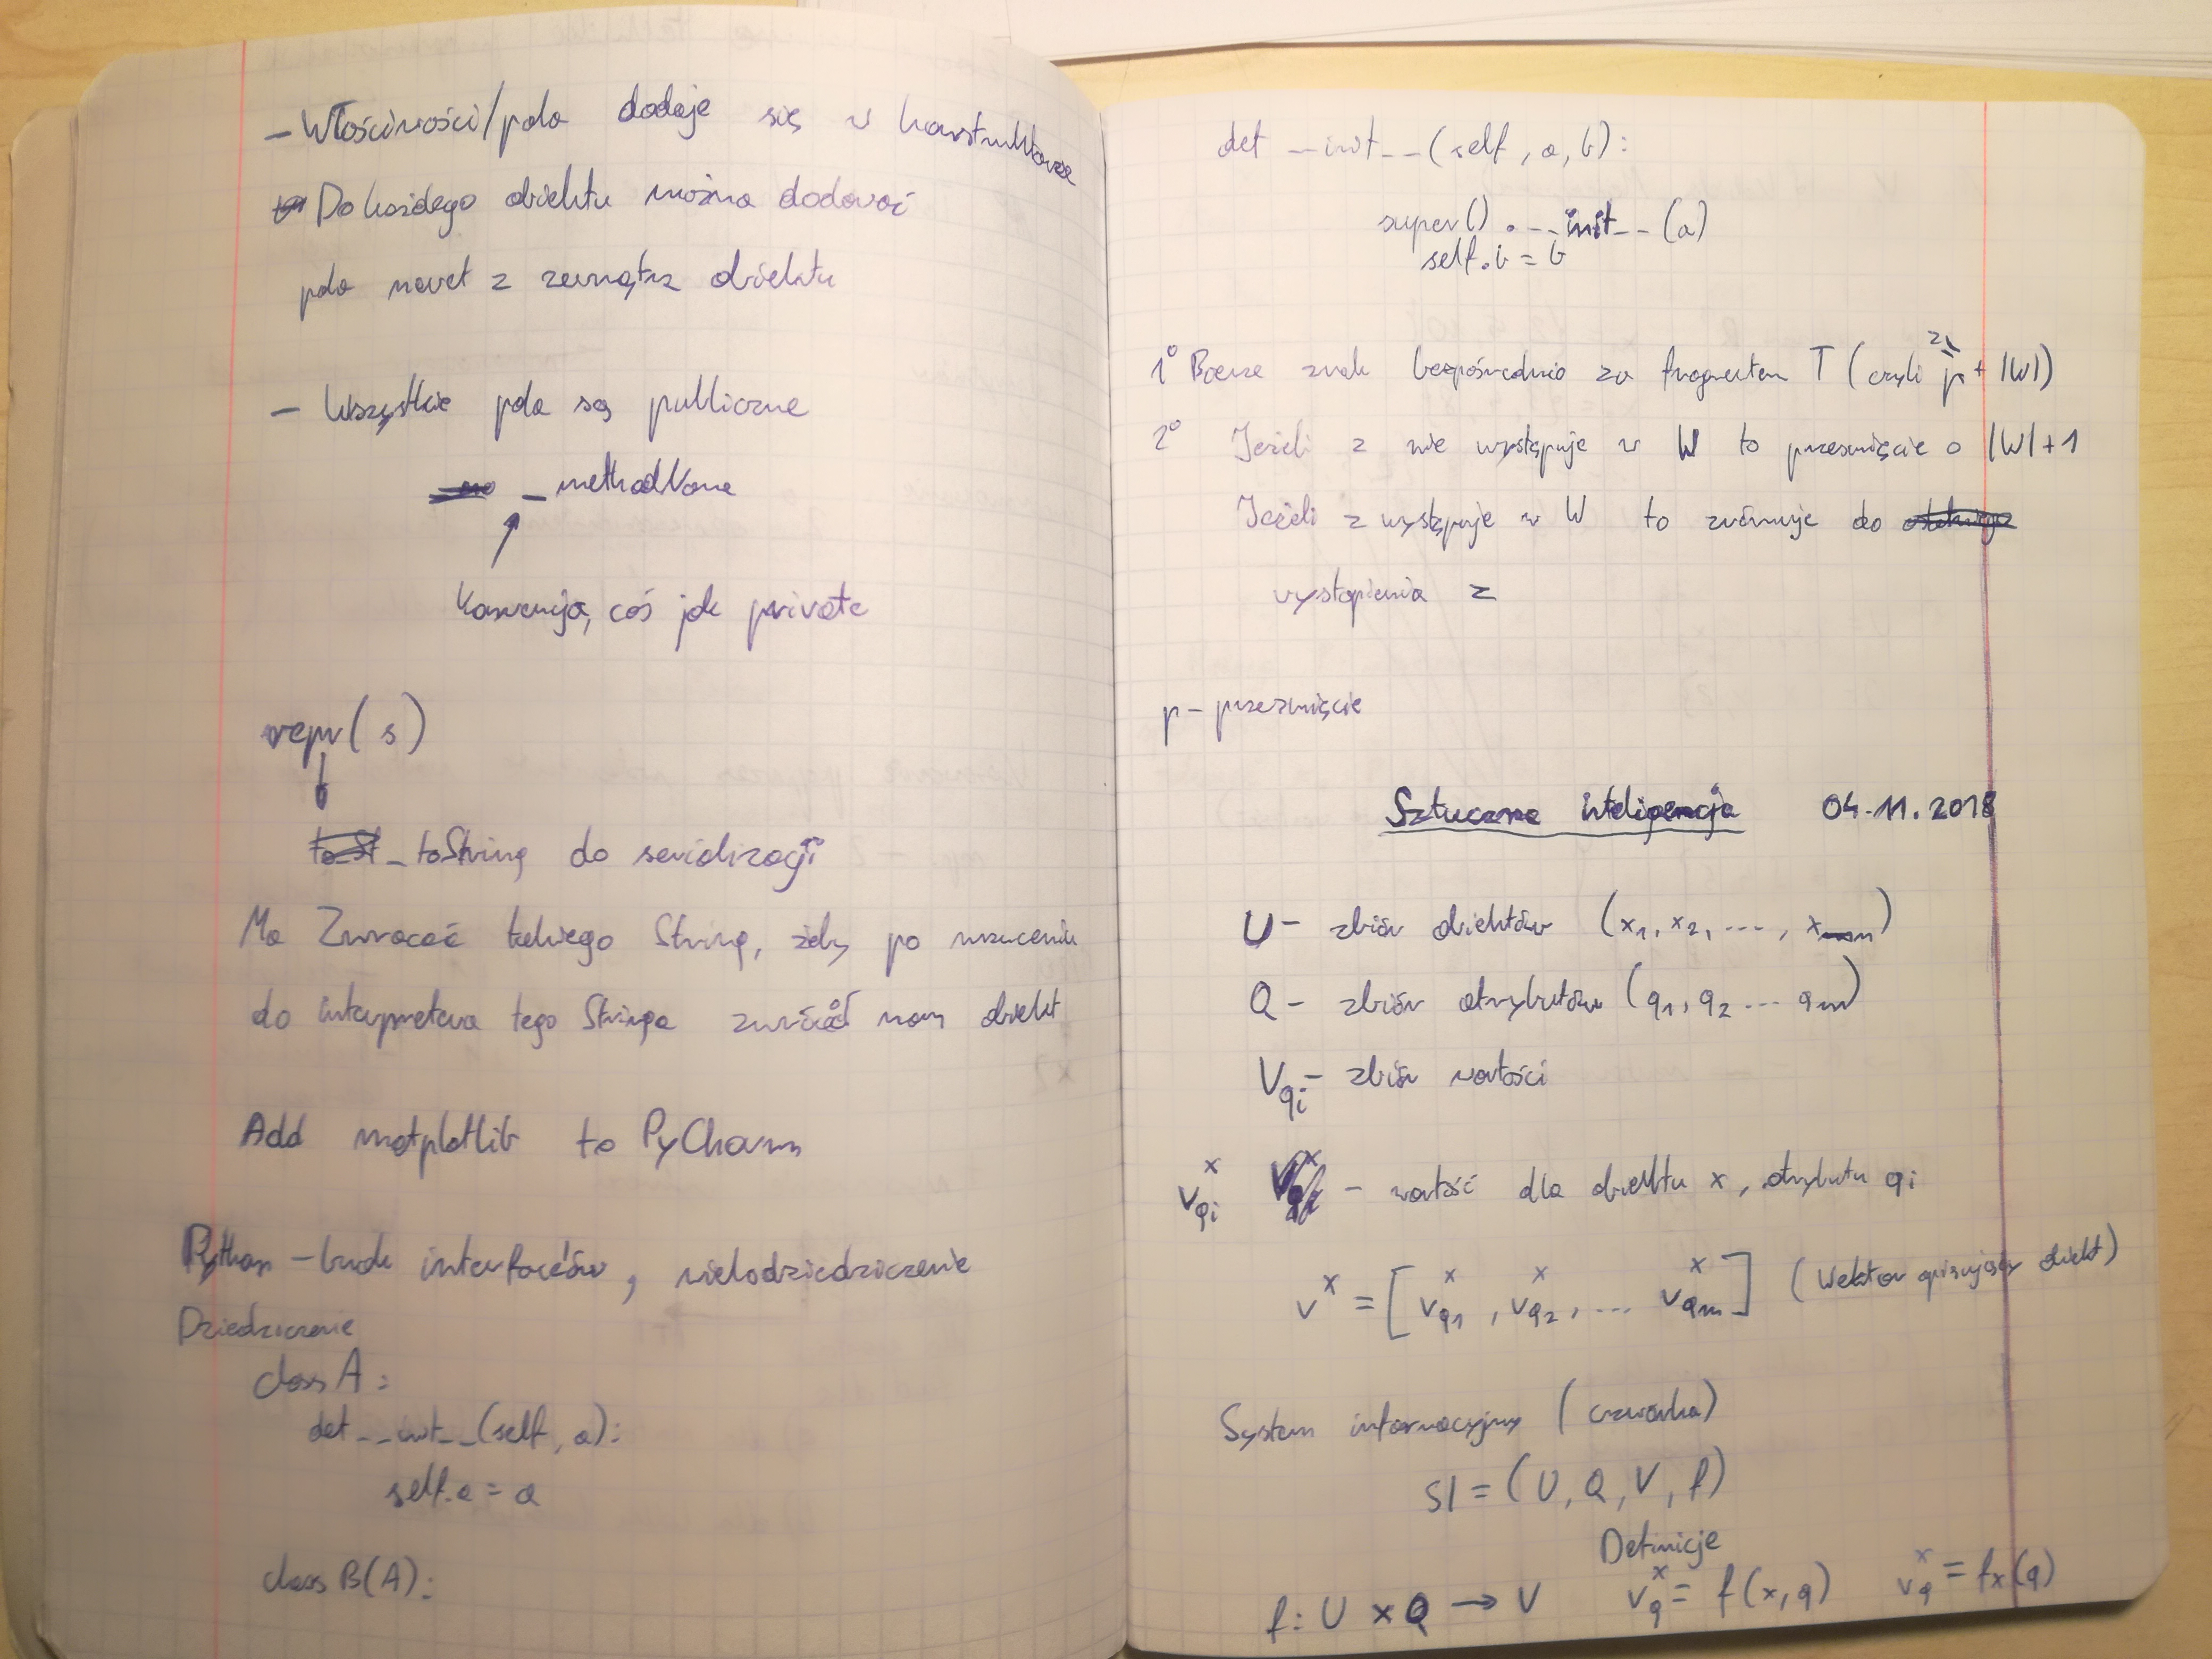 - Właściwości/pola dodaje się w konstruktorze
Do każdego obiektu można dodawać
pola nawet z zewnątrz obiektu
- Wszystkie pola są publiczne
_methodName
konwencja, coś jak private
repr(s)
toString do serializacji
Ma Zwracać takiego String, żeby po wrzuceniu
do interpretera tego Stringa zwrócił nam obiekt
Add matplotlib to PyCharm
Python - brak interface'ów, wielodziedziczenie
Dziedziczenie
class A:
def __init__(self, a):
self.a = a
class B(A):
def __init__(self, a, b):
super().__init__(a)
self.b = b
1° Bierze znak bezpośrednio za fragmentem T (czyli p + |W|)
2° Jeżeli z nie występuje w W to przesunięcie o |W|+1
Jeżeli z występuje w W to zrównuje do
wystąpienia z
p - przesunięcie
Sztuczna inteligencja 04.11.2018
U - zbiór obiektów (x₁, x₂, ..., xₙ)
Q - zbiór atrybutów (q₁, q₂ ... qm)
Vqi - zbiór wartości
v^x_qi - wartość dla obiektu x, atrybutu qi
v^x = [v^x_q1, v^x_q2, ... v^x_qm] (Wektor opisujący obiekt)
System informacyjny (czwórka)
SI = (U, Q, V, f)
Definicje
f: U × Q → V v^x_q = f(x, q) v^x_q = fx(q)